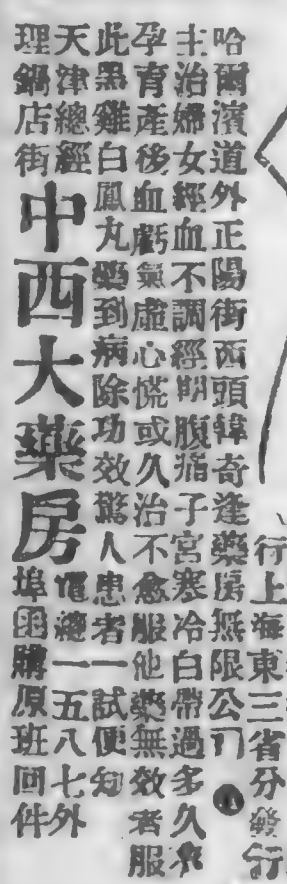 行上海東三省分發行
哈爾濱道外正陽街西頭韓奇逢藥房無限公司
主治婦女經血不調經期腹痛子宮寒冷白帶過多久不
孕育產後血虧氣虛心慌或久治不愈服他藥無效者服
此黑雞白鳳丸藥到病除功效驚人患者一試便知
天津總經
理鍋店街
中西大藥房
電總一五八七外
埠函購原班回件